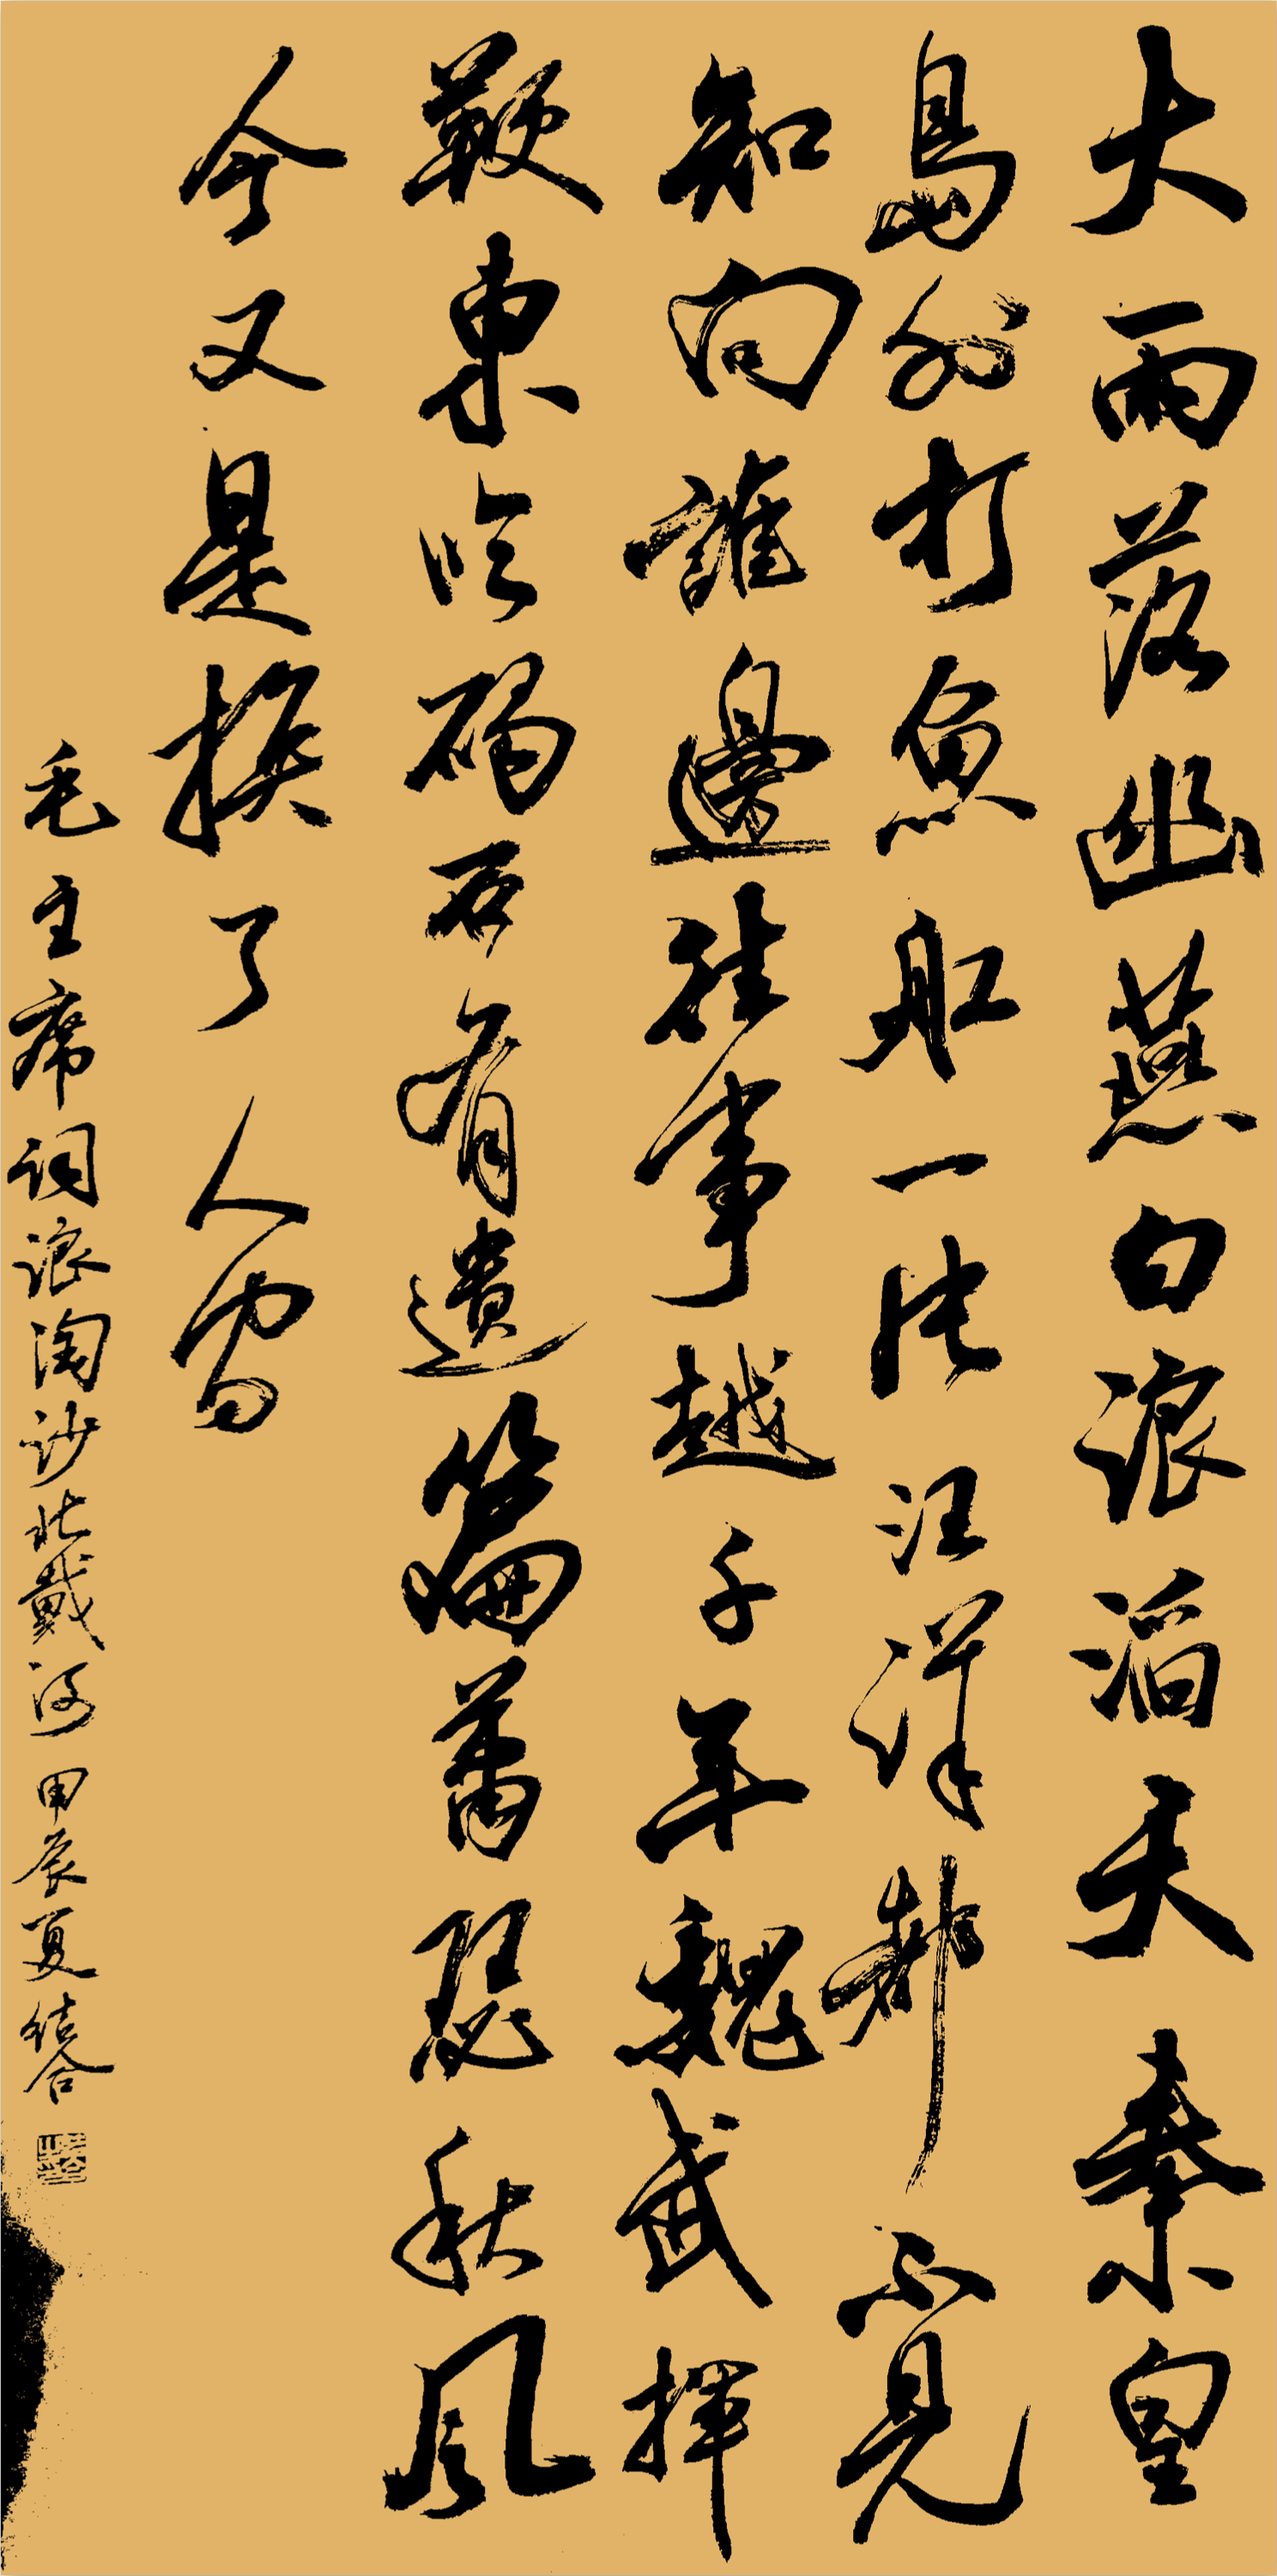 大雨落幽燕白浪滔天秦皇
島外打魚船一片汪洋都不見
知向誰邊往事越千年魏武揮
鞭東臨碣石有遺篇蕭瑟秋風
今又是換了人間
毛主席詞浪淘沙北戴河甲辰夏